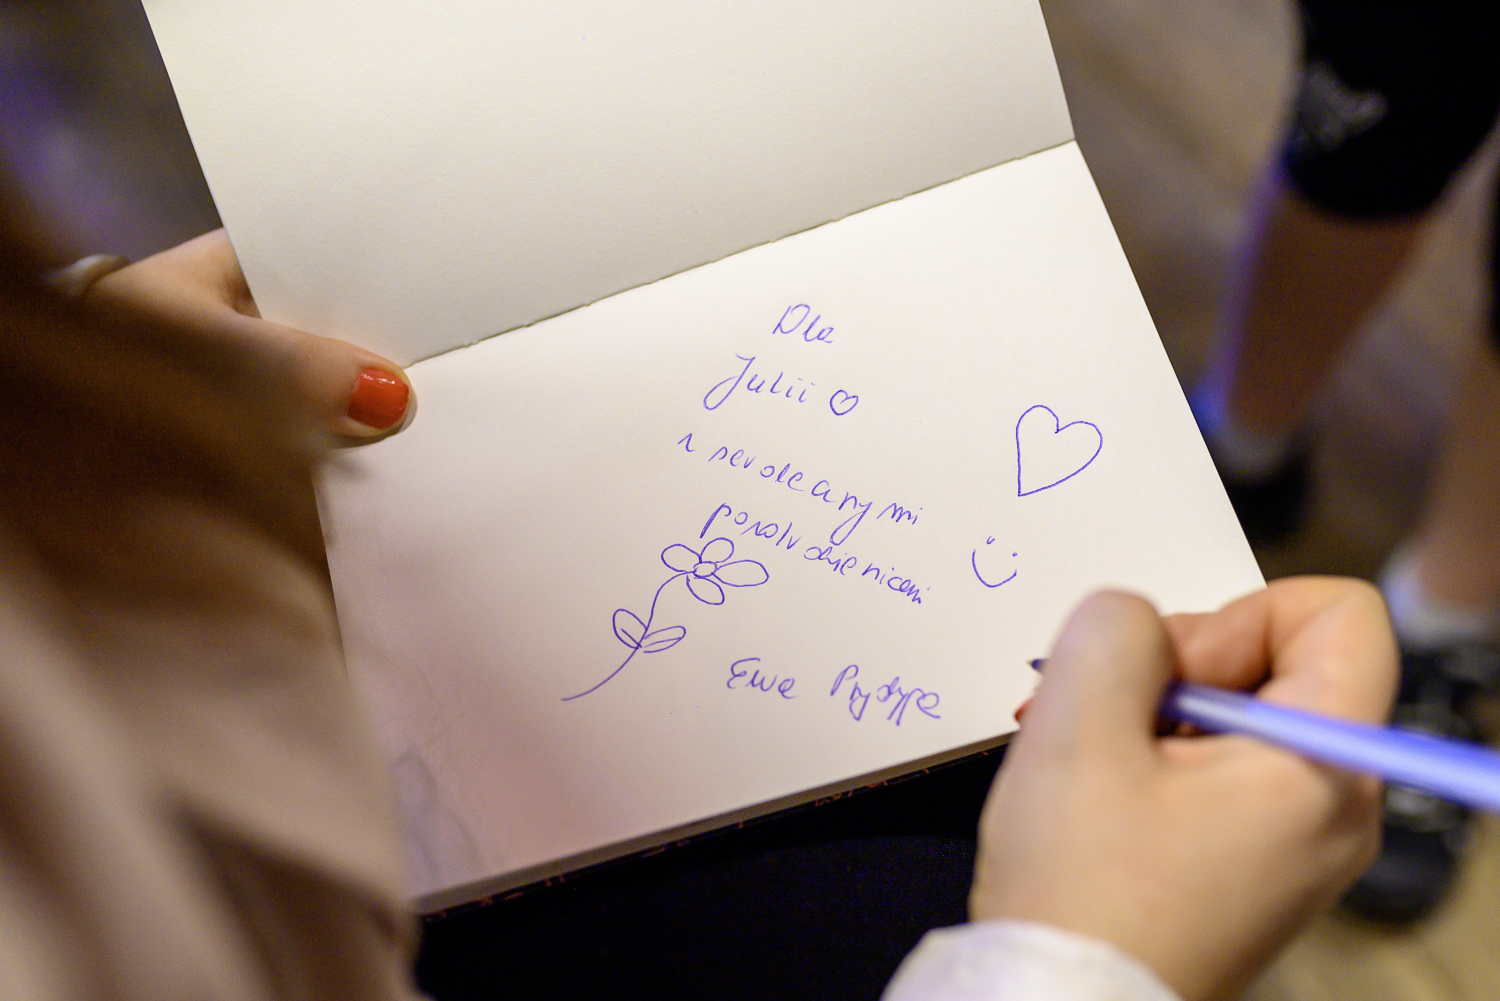 Dla
Julii ♡
z serdecznymi
pozdrowieniami
Ewa